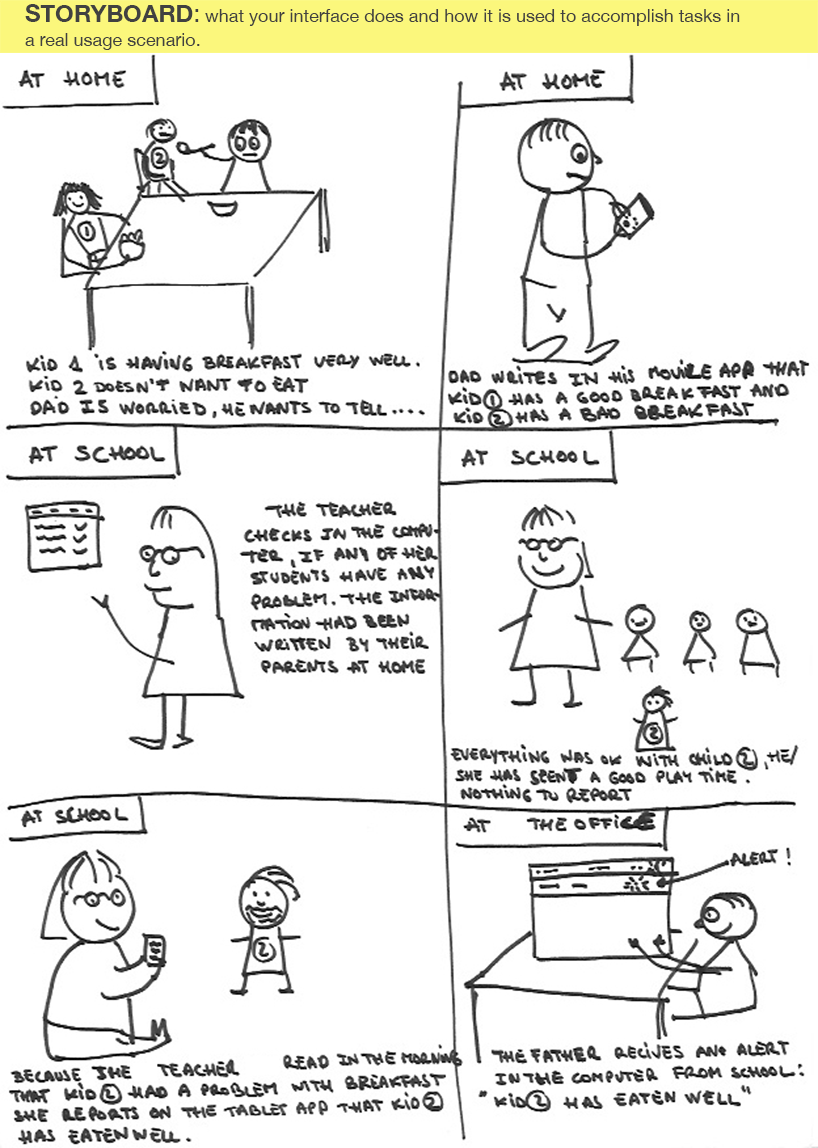 STORYBOARD: what your interface does and how it is used to accomplish tasks in
a real usage scenario.
AT HOME
2
1
KID 1 IS HAVING BREAKFAST VERY WELL.
KID 2 DOESN'T WANT TO EAT
DAD IS WORRIED, HE WANTS TO TELL....
AT HOME
DAD WRITES IN HIS MOVILE APP THAT
KID 1 HAS A GOOD BREAKFAST AND
KID 2 HAS A BAD BREAKFAST
AT SCHOOL
THE TEACHER
CHECKS IN THE COMPU-
TER, IF ANY OF HER
STUDENTS HAVE ANY
PROBLEM. THE INFOR-
MATION HAD BEEN
WRITTEN BY THEIR
PARENTS AT HOME
AT SCHOOL
2
EVERYTHING WAS OK WITH CHILD 2, HE/
SHE HAS SPENT A GOOD PLAY TIME.
NOTHING TO REPORT
AT SCHOOL
2
BECAUSE THE TEACHER READ IN THE MORNING
THAT KID 2 HAD A PROBLEM WITH BREAKFAST
SHE REPORTS ON THE TABLET APP THAT KID 2
HAS EATEN WELL.
AT THE OFFICE
ALERT!
THE FATHER RECIVES AN ALERT
IN THE COMPUTER FROM SCHOOL:
"KID 2 HAS EATEN WELL"